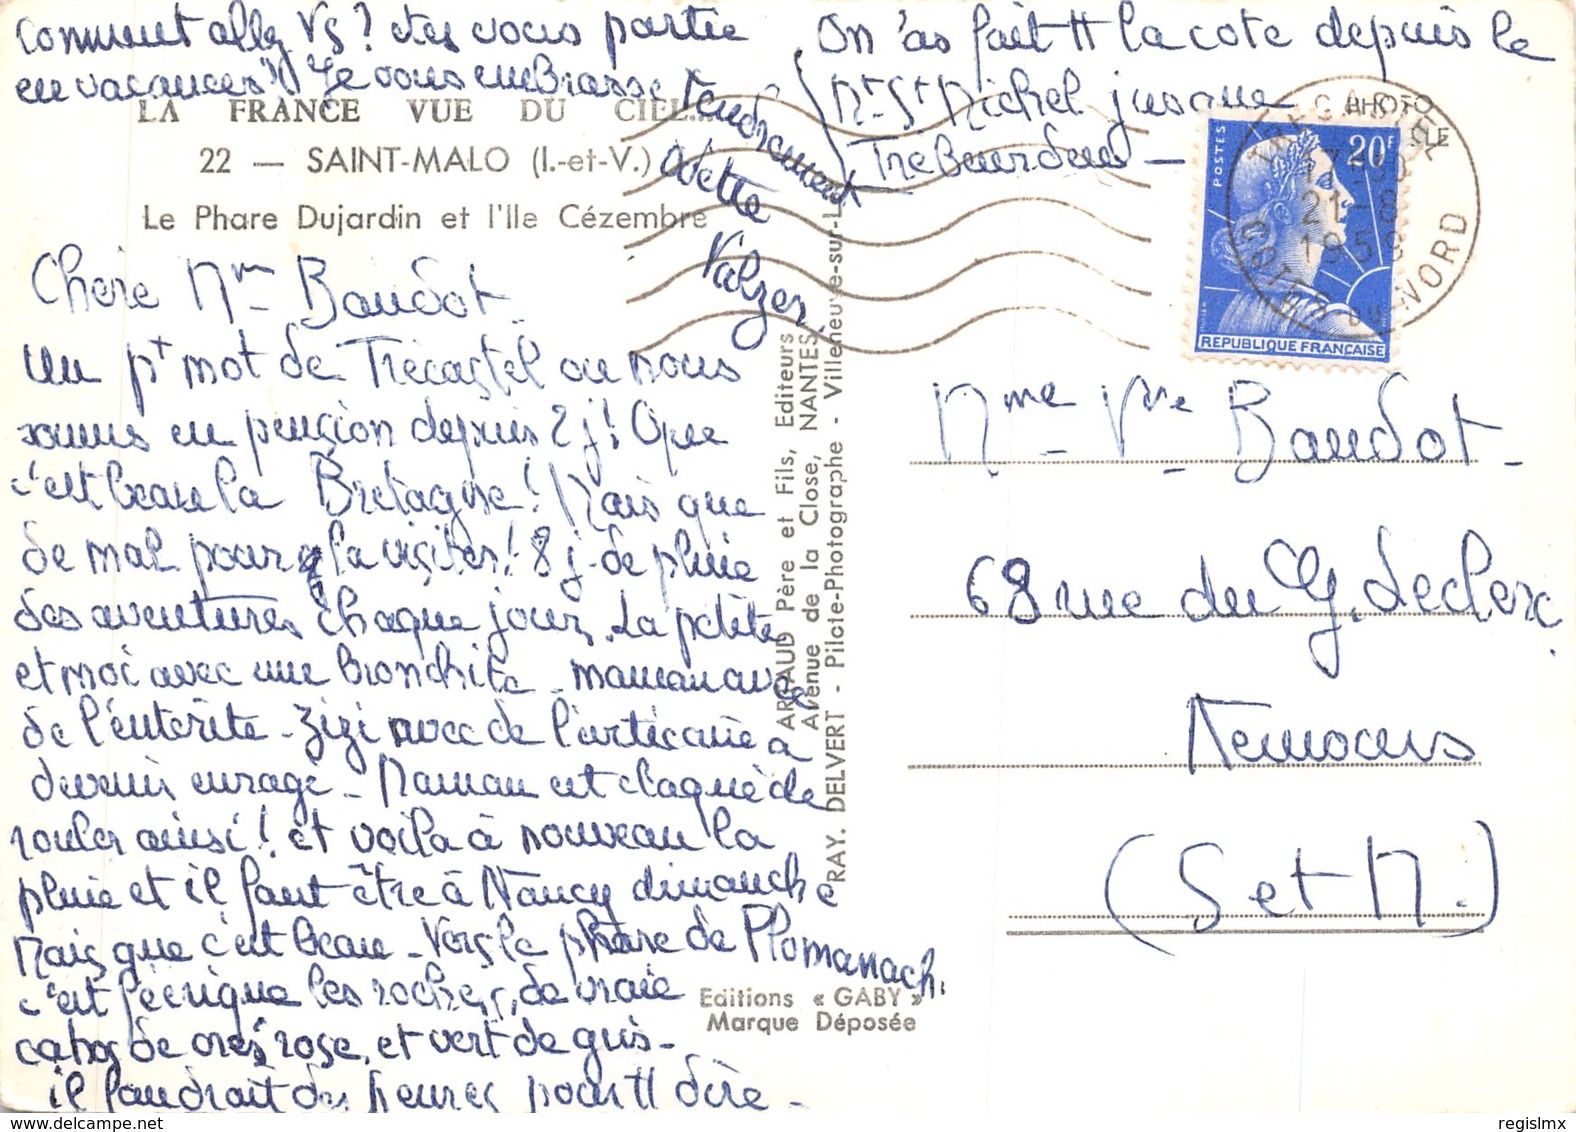 Comment allez vs ? etes vous partie
en vacances ? Je vous embrasse
tendrement
Odette
Valzer.
On as fait tt la cote depuis le
Mt St Michel jusque
Trebeurden —
LA FRANCE VUE DU CIEL...
22 — SAINT-MALO (I.-et-V.)
Le Phare Dujardin et l'Ile Cézembre
Chere Mm Baudot.
un pt mot de Trécastel ou nous
somms en pension depuis 2 j ! Que
c'est beau la Bretagne ! Mais que
de mal pour la visiter ! 8 j. de pluie
des aventures chaque jour. La petite
et moi avec une bronchite - maman avec
de l'enterite - Zizi avec de l'urticaire à
devenir enragé - Maman est claquée de
rouler ainsi ! et voila à nouveau la
pluie et il faut être à Nancy dimanche
Mais que c'est beau - Vers le phare de Ploumanach.
c'est féerique les rochers, de vraie
cahos de ores rose, et vert de gris -
il faudrait des heures pour tt dire -
ARTAUD Père et Fils, Editeurs
Avenue de la Close, NANTES
RAY. DELVERT - Pilote-Photographe - Villeneuve-sur-L
Editions « GABY »
Marque Déposée
PHOTO
LE
POSTES
20F
REPUBLIQUE FRANÇAISE
TREGASTEL
21-8
195
COTES DU NORD
Mme Vve Baudot -
68 rue du G. Leclerc.
Nemours
(S et M.)
regislmx